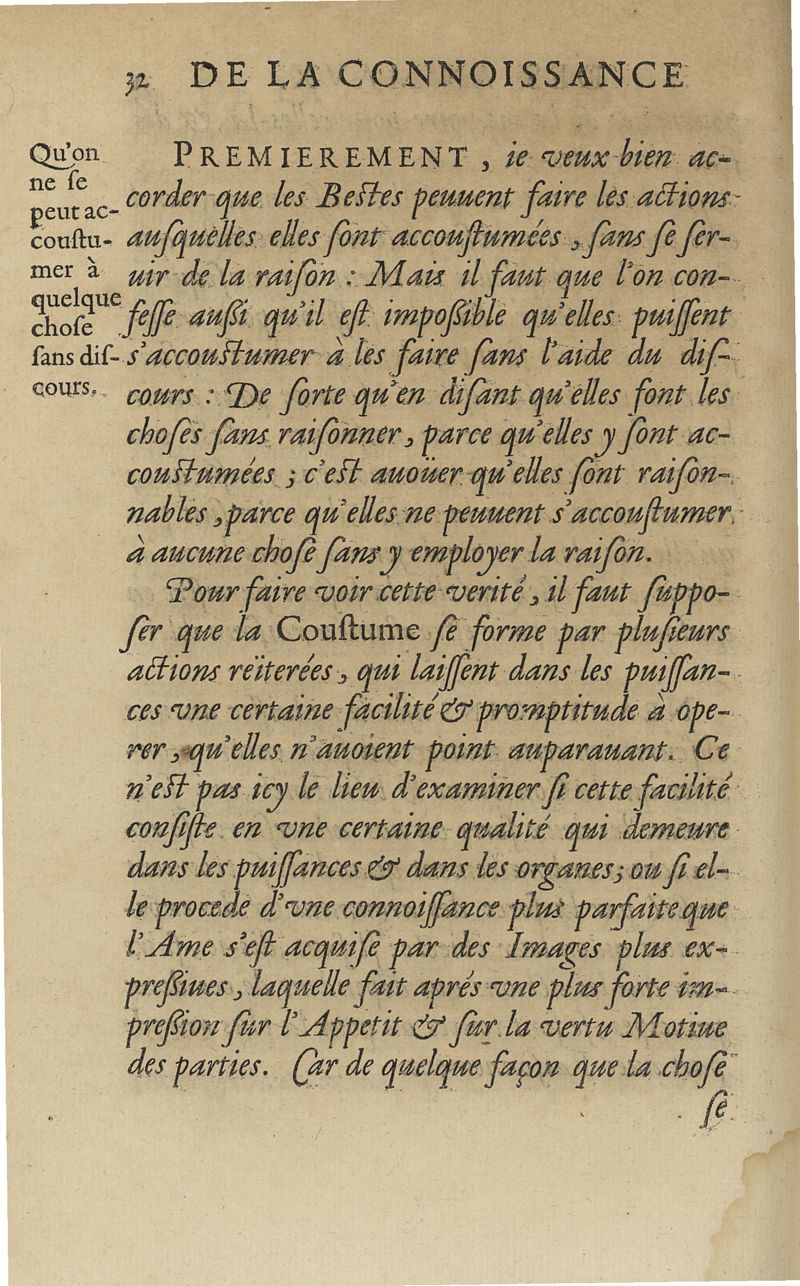 32 DE LA CONNOISSANCE
Qu'on
ne ſe
peut ac-
couſtu-
mer à
quelque
choſe
ſans diſ-
cours.
PREMIEREMENT, ie veux bien ac-
corder que les Beſtes peuuent faire les actions
auſquelles elles ſont accouſtumées, ſans ſe ſer-
uir de la raiſon : Mais il faut que l'on con-
feſſe auſſi qu'il eſt impoſſible qu'elles puiſſent
s'accouſtumer à les faire ſans l'aide du diſ-
cours : De ſorte qu'en diſant qu'elles font les
choſes ſans raiſonner, parce qu'elles y ſont ac-
couſtumées ; c'eſt auoüer qu'elles ſont raiſon-
nables, parce qu'elles ne peuuent s'accouſtumer
à aucune choſe ſans y employer la raiſon.
Pour faire voir cette verité, il faut ſuppo-
ſer que la Couſtume ſe forme par pluſieurs
actions reïterées, qui laiſſent dans les puiſſan-
ces vne certaine facilité & promptitude à ope-
rer, qu'elles n'auoient point auparauant. Ce
n'eſt pas icy le lieu d'examiner ſi cette facilité
conſiſte en vne certaine qualité qui demeure
dans les puiſſances & dans les organes; ou ſi el-
le procede d'vne connoiſſance plus parfaite que
l'Ame s'eſt acquiſe par des Images plus ex-
preſſiues, laquelle fait aprés vne plus forte im-
preſſion ſur l'Appetit & ſur la vertu Motiue
des parties. Car de quelque façon que la choſe
ſe